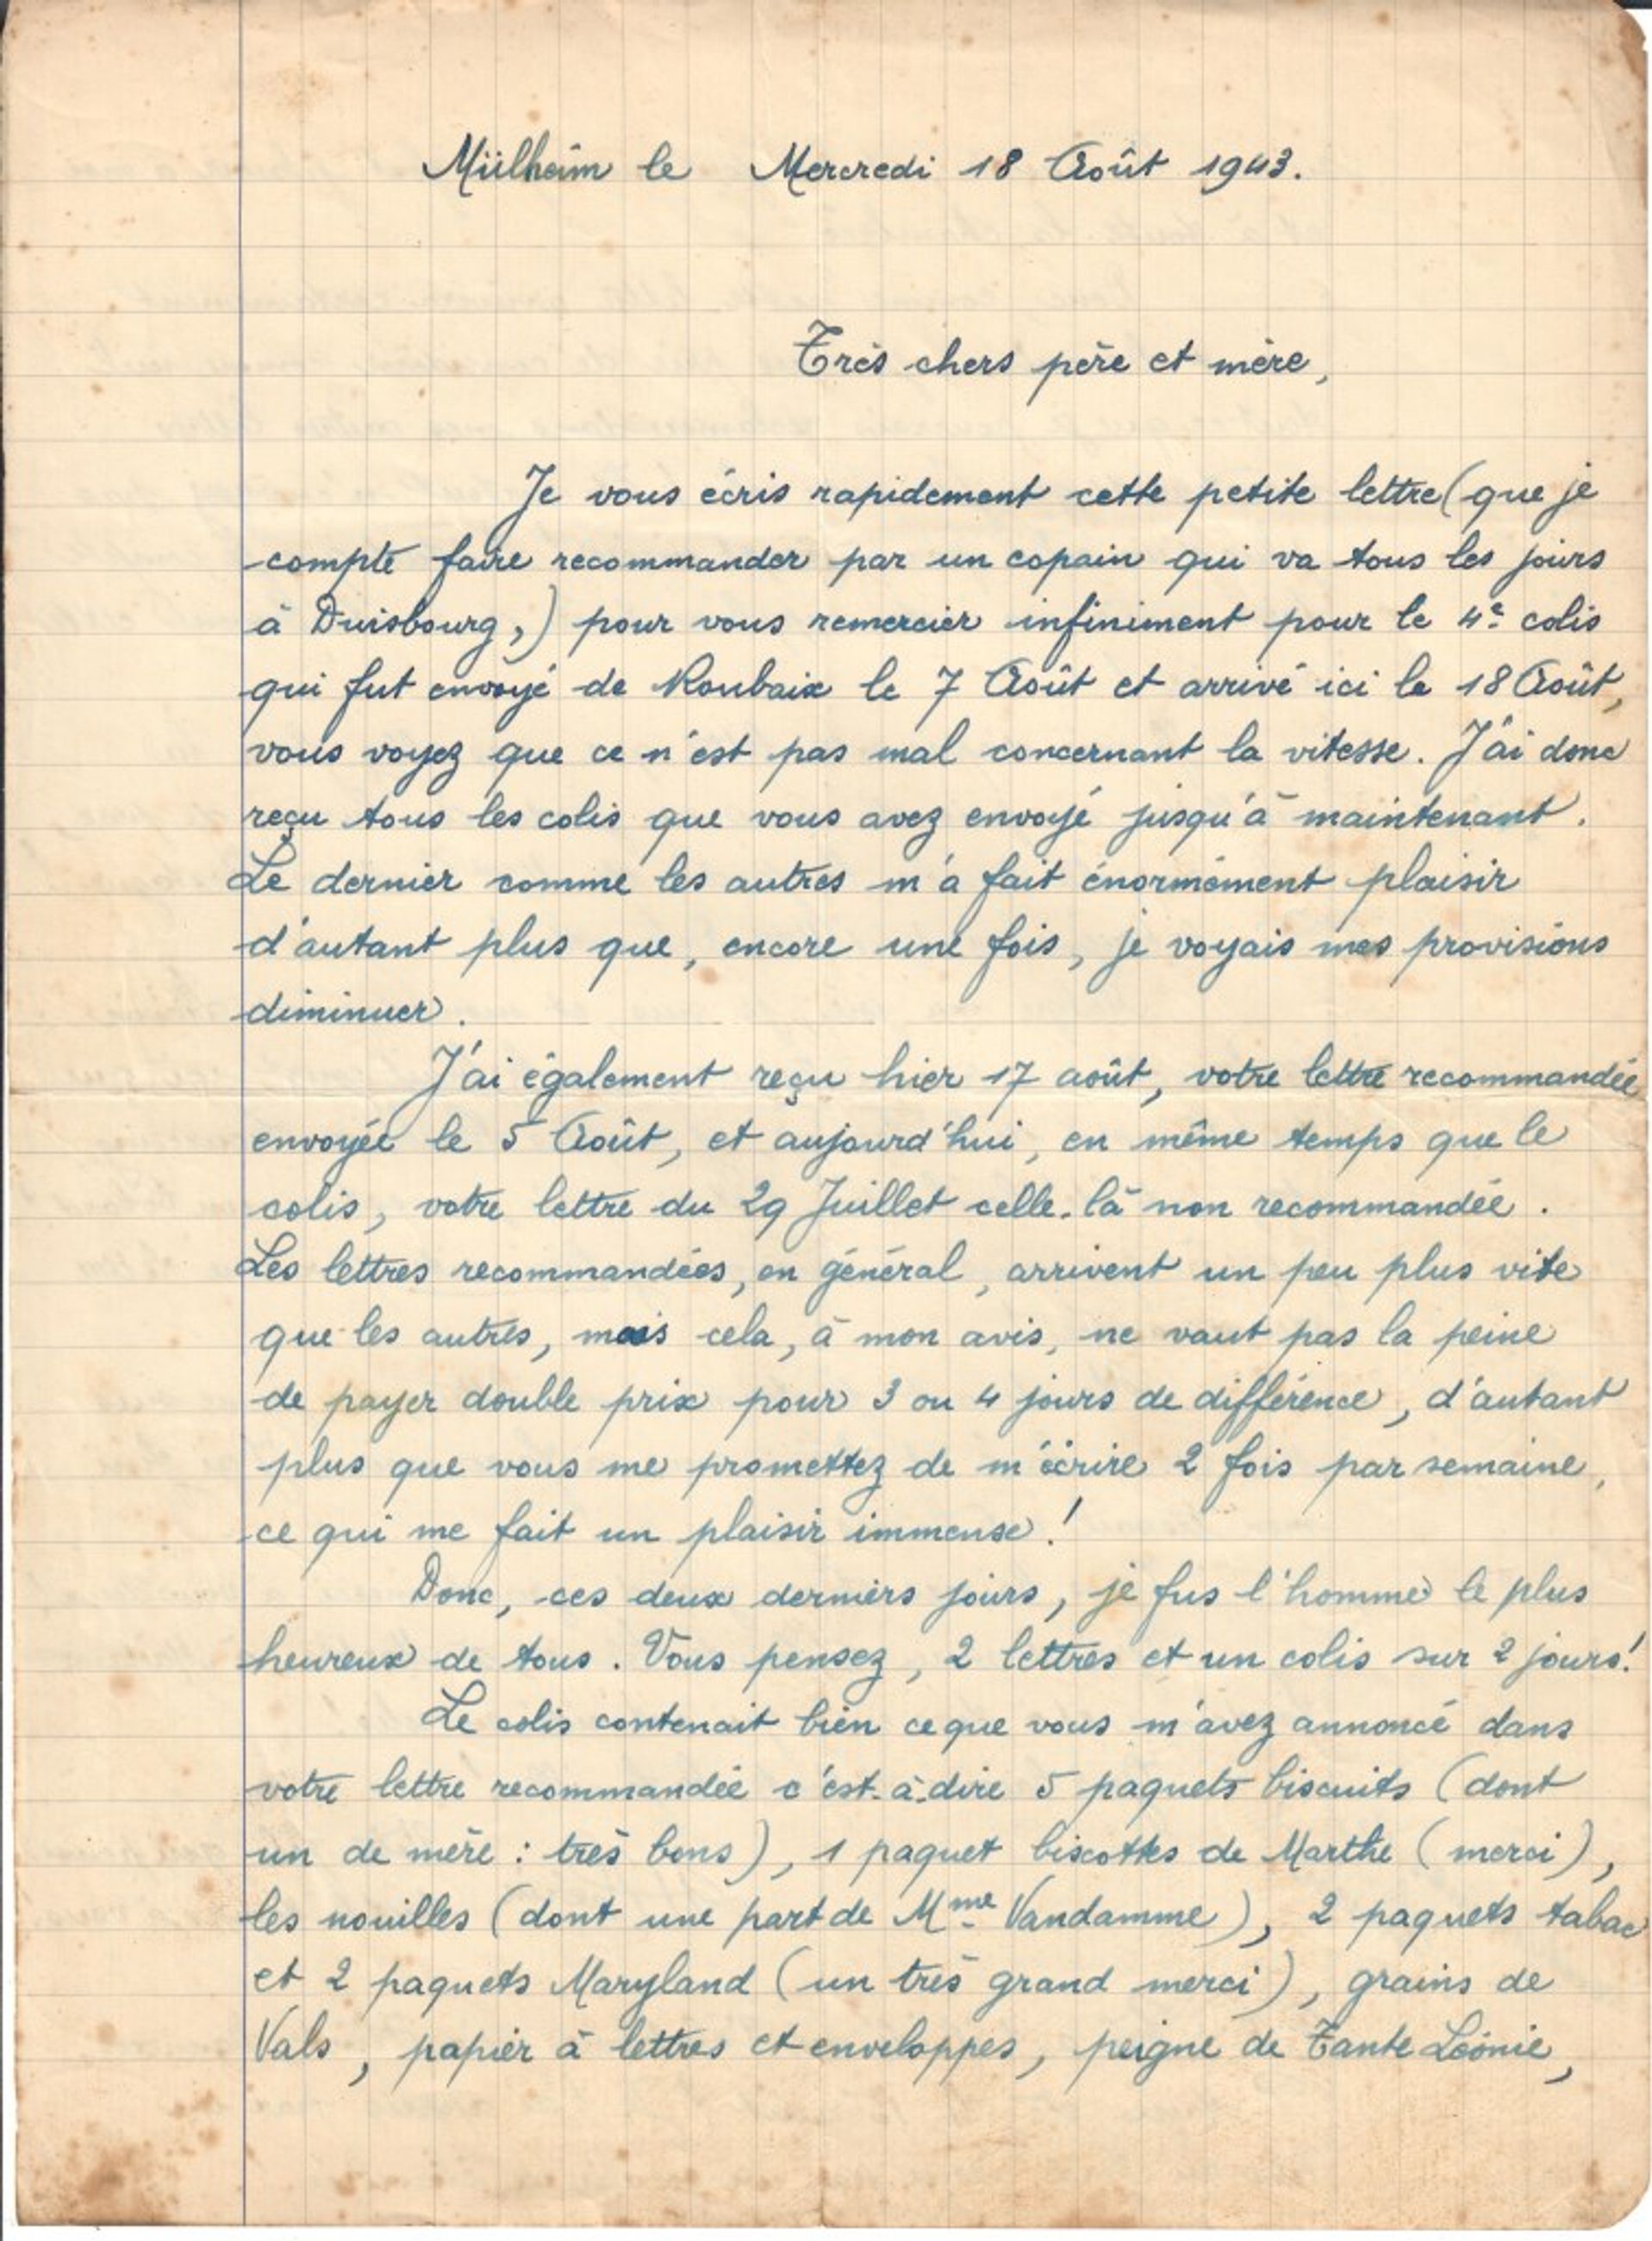 Mülheim le Mercredi 18 Août 1943.
Très chers père et mère,
Je vous écris rapidement cette petite lettre (que je
compte faire recommander par un copain qui va tous les jours
à Duisbourg,) pour vous remercier infiniment pour le 4e colis
qui fut envoyé de Roubaix le 7 Août et arrivé ici le 18 Août,
vous voyez que ce n'est pas mal concernant la vitesse. J'ai donc
reçu tous les colis que vous avez envoyé jusqu'à maintenant.
Le dernier comme les autres m'a fait énormément plaisir
d'autant plus que, encore une fois, je voyais mes provisions
diminuer.
J'ai également reçu hier 17 août, votre lettre recommandée
envoyée le 5 Août, et aujourd'hui, en même temps que le
colis, votre lettre du 29 Juillet celle-là non recommandée.
Les lettres recommandées, en général, arrivent un peu plus vite
que les autres, mais cela, à mon avis, ne vaut pas la peine
de payer double prix pour 3 ou 4 jours de différence, d'autant
plus que vous me promettez de m'écrire 2 fois par semaine,
ce qui me fait un plaisir immense!
Donc, ces deux derniers jours, je fus l'homme le plus
heureux de tous. Vous pensez, 2 lettres et un colis sur 2 jours!
Le colis contenait bien ce que vous m'avez annoncé dans
votre lettre recommandée c'est-à-dire 5 paquets biscuits (dont
un de mère : très bons), 1 paquet biscottes de Marthe (merci),
les nouilles (dont une part de Mme Vandamme), 2 paquets tabac
et 2 paquets Maryland (un très grand merci), grains de
Vals, papier à lettres et enveloppes, peigne de Tante Léonie,